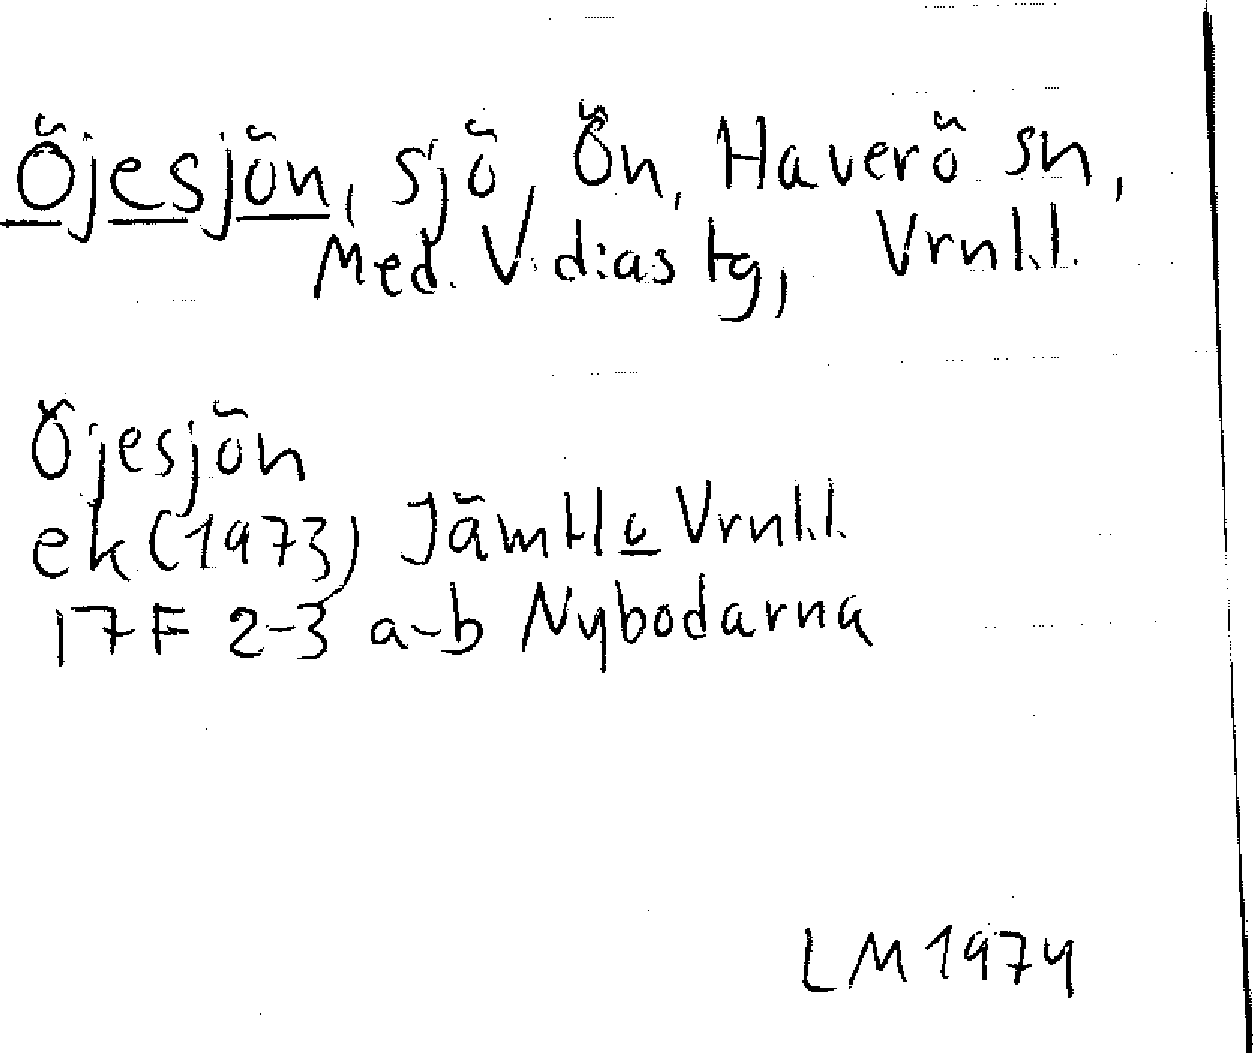 Öjesjön, sjö, Ön, Haverö sn,
Med. V. d:as tg, Vrnl.l.
Öjesjön
ek (1973) Jämtl o Vrnl.l.
17F 2-3 a-b Nybodarna
LM 1974